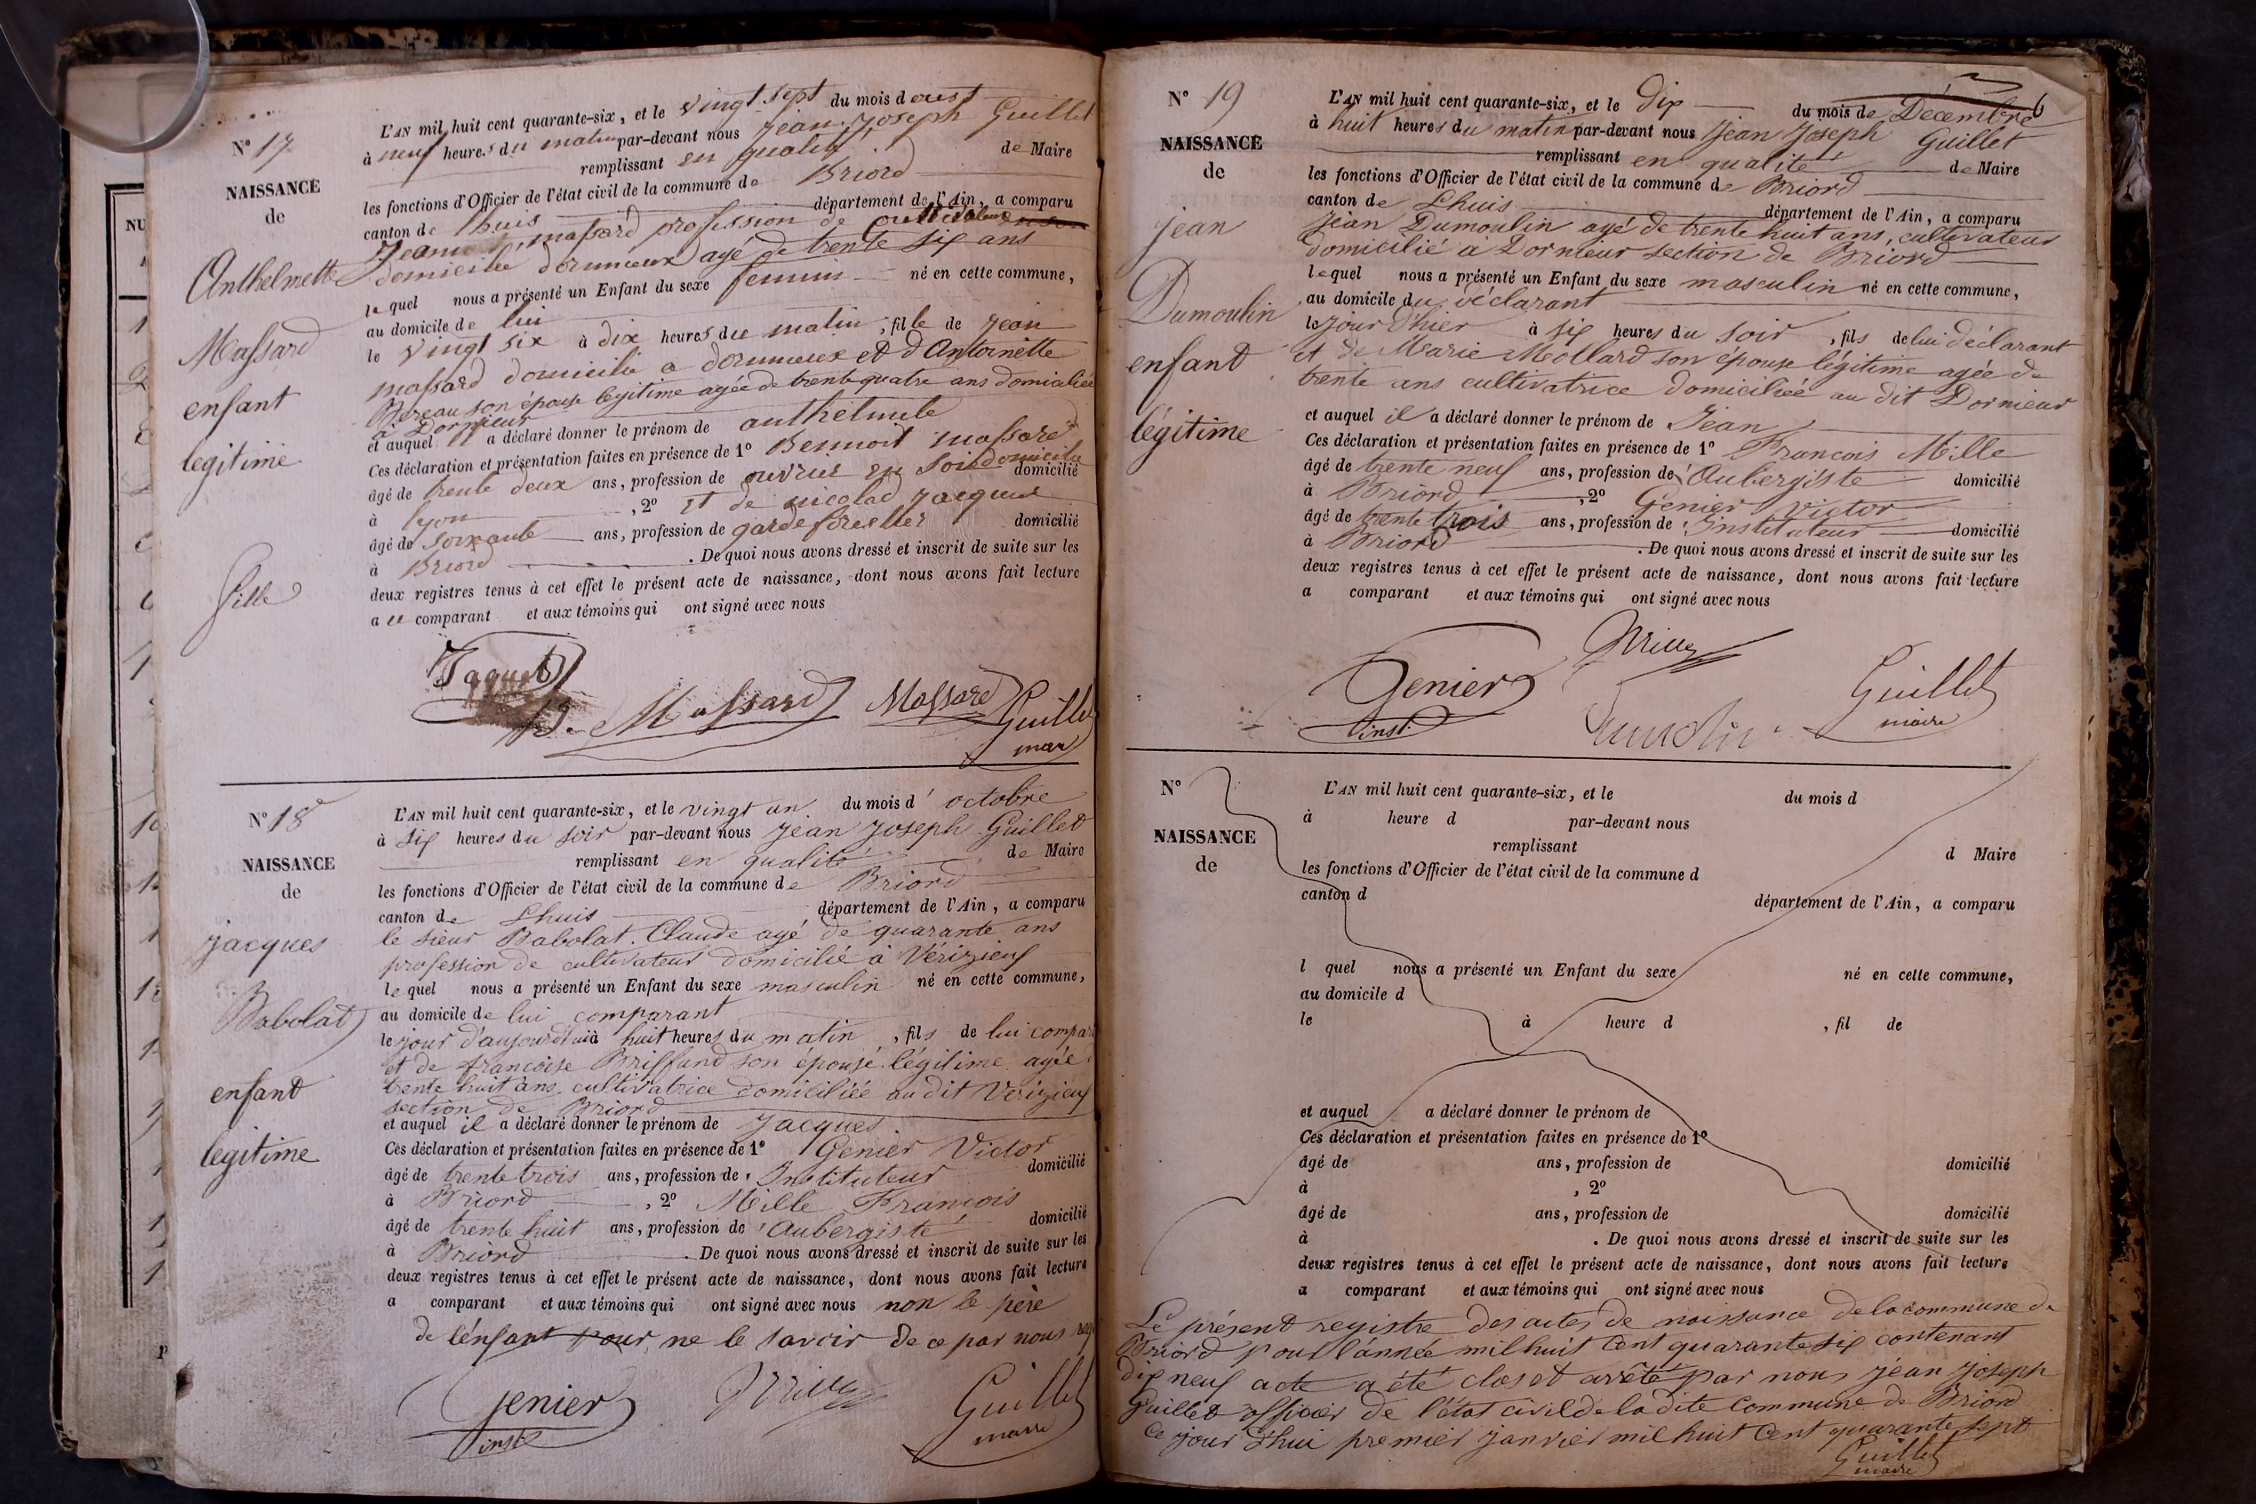 N° 17
NAISSANCE
de
Anthelmette
Massard
enfant
legitime
fille
L'AN mil huit cent quarante-six, et le vingt sept du mois d'oust
à neuf heures du matin par-devant nous jean joseph Guillet
remplissant en qualité de Maire
les fonctions d'Officier de l'état civil de la commune de Briord
canton de lhuis département de l'Ain, a comparu
Jeanne massard profession de cultivateur
domicilie dornieux agé de trente six ans
le quel nous a présenté un Enfant du sexe feminin né en cette commune,
au domicile de lui
le vingt six à dix heures du matin, fille de jean
massard domicilie a dornieux et d'Antoinette
Bereau son épouse legitime agée de trente quatre ans domiciliée
à Dornieux
et auquel a déclaré donner le prénom de anthelmete
Ces déclaration et présentation faites en présence de 1° Bennoit massard
âgé de trente deux ans, profession de ouvrier en soie domicilié
à lyon, 2° et de nicolas jacquet
âgé de soixante ans, profession de garde forestier domicilié
à Briord. De quoi nous avons dressé et inscrit de suite sur les
deux registres tenus à cet effet le présent acte de naissance, dont nous avons fait lecture
a u comparant et aux témoins qui ont signé avec nous
Jaquet
B. Massard Massard Guillet
maire
N° 18
NAISSANCE
de
jacques
Babolat
enfant
legitime
L'AN mil huit cent quarante-six, et le vingt un du mois d'octobre
à six heures du soir par-devant nous jean joseph Guillet
remplissant en qualité de Maire
les fonctions d'Officier de l'état civil de la commune de Briord
canton de Lhuis département de l'Ain, a comparu
le sieur Babolat Claude agé de quarante ans
profession de cultivateur domicilié à Vérizieux
le quel nous a présenté un Enfant du sexe masculin né en cette commune,
au domicile de lui comparant
le jour d'aujourd'hui à huit heures du matin, fils de lui compar
et de françoise Briffand son épouse légitime agée
trente huit ans cultivatrice domiciliée au dit Verizieux
section de Briord
et auquel il a déclaré donner le prénom de Jacques
Ces déclaration et présentation faites en présence de 1° Genier Victor
âgé de trente trois ans, profession de Instituteur domicilié
à Briord, 2° Mille François
âgé de trente huit ans, profession de Aubergiste domicilié
à Briord. De quoi nous avons dressé et inscrit de suite sur les
deux registres tenus à cet effet le présent acte de naissance, dont nous avons fait lecture
a comparant et aux témoins qui ont signé avec nous non le père
de l'énfant pour ne le savoir de ce par nous
Genier Mille Guillet
inst maire
N° 19
NAISSANCE
de
jean
Dumoulin
enfant
légitime
L'AN mil huit cent quarante-six, et le dix du mois de Décembre
à huit heures du matin par-devant nous Jean Joseph Guillet
remplissant en qualité de Maire
les fonctions d'Officier de l'état civil de la commune de Briord
canton de Lhuis département de l'Ain, a comparu
Jean Dumoulin agé de trente huit ans, cultivateur
domicilié à Dornieux section de Briord
lequel nous a présenté un Enfant du sexe masculin né en cette commune,
au domicile du déclarant
le jour d'hier à six heures du soir, fils de lui déclarant
et de Marie Mollard son épouse légitime agée de
trente ans cultivatrice domiciliée au dit Dornieux
et auquel il a déclaré donner le prénom de Jean
Ces déclaration et présentation faites en présence de 1° Francois Mille
âgé de trente neuf ans, profession de Aubergiste domicilié
à Briord, 2° Genier Victor
âgé de trente trois ans, profession de Instituteur domicilié
à Briord. De quoi nous avons dressé et inscrit de suite sur les
deux registres tenus à cet effet le présent acte de naissance, dont nous avons fait lecture
a comparant et aux témoins qui ont signé avec nous
Mille
Genier Guillet
inst. Dumolin maire
N°
NAISSANCE
de
L'AN mil huit cent quarante-six, et le du mois d
à heure d par-devant nous
remplissant d Maire
les fonctions d'Officier de l'état civil de la commune d
canton d département de l'Ain, a comparu
l quel nous a présenté un Enfant du sexe né en cette commune,
au domicile d
le à heure d, fil de
et auquel a déclaré donner le prénom de
Ces déclaration et présentation faites en présence de 1°
âgé de ans, profession de domicilié
à, 2°
âgé de ans, profession de domicilié
à. De quoi nous avons dressé et inscrit de suite sur les
deux registres tenus à cet effet le présent acte de naissance, dont nous avons fait lecture
a comparant et aux témoins qui ont signé avec nous
Le présent registre des actes de naissance de la commune de
Briord pour l'année mil huit cent quarante six contenant
dix neuf acte a été clos et arrêté par nous jean joseph
Guillet officier de l'état civil de la dite commune de Briord
ce jour d'hui premier janvier mil huit cent quarante sept
Guillet
maire